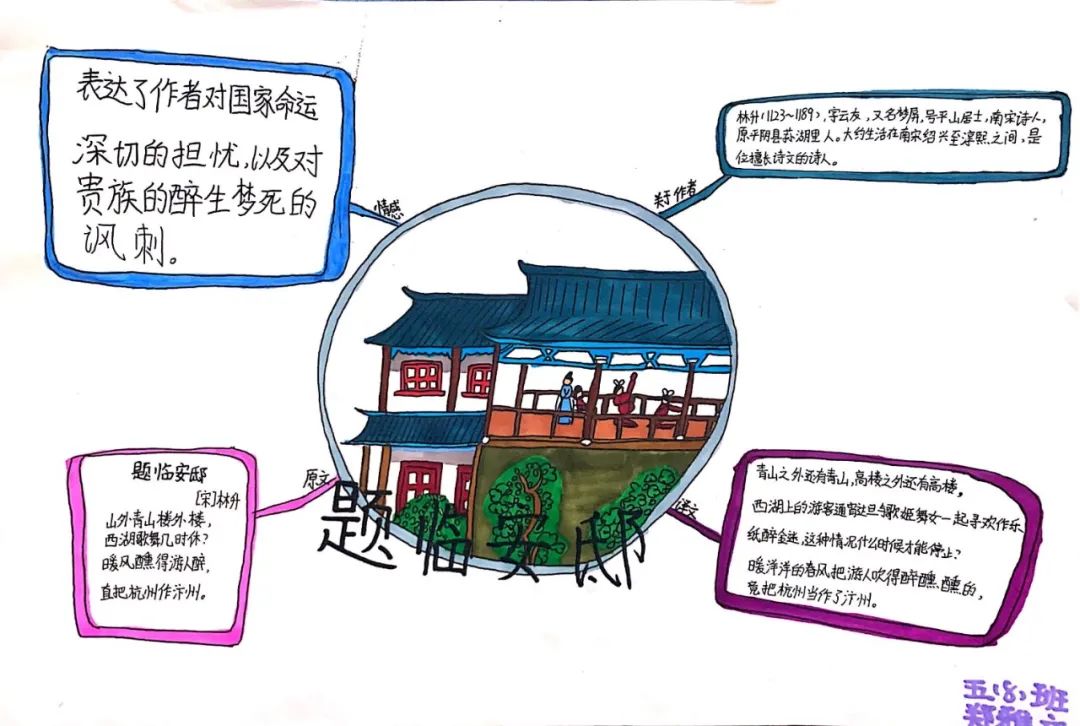 表达了作者对国家命运
深切的担忧,以及对
贵族的醉生梦死的
讽刺。
情感
林升(1123~1189),字云友,又名梦屏,号平山居士,南宋诗人,
原平阴县荪湖里人。大约生活在南宋绍兴至淳熙之间,是
位擅长诗文的诗人。
关于作者
题临安邸
[宋]林升
山外青山楼外楼,
西湖歌舞几时休?
暖风醺得游人醉,
直把杭州作汴州。
原文
题临安邸
译文
青山之外还有青山,高楼之外还有高楼,
西湖上的游客通宵达旦与歌姬舞女一起寻欢作乐
纸醉金迷,这种情况什么时候才能停止?
暖洋洋的春风把游人吹得醉醺醺的,
竟把杭州当作了汴州。
五(8)班